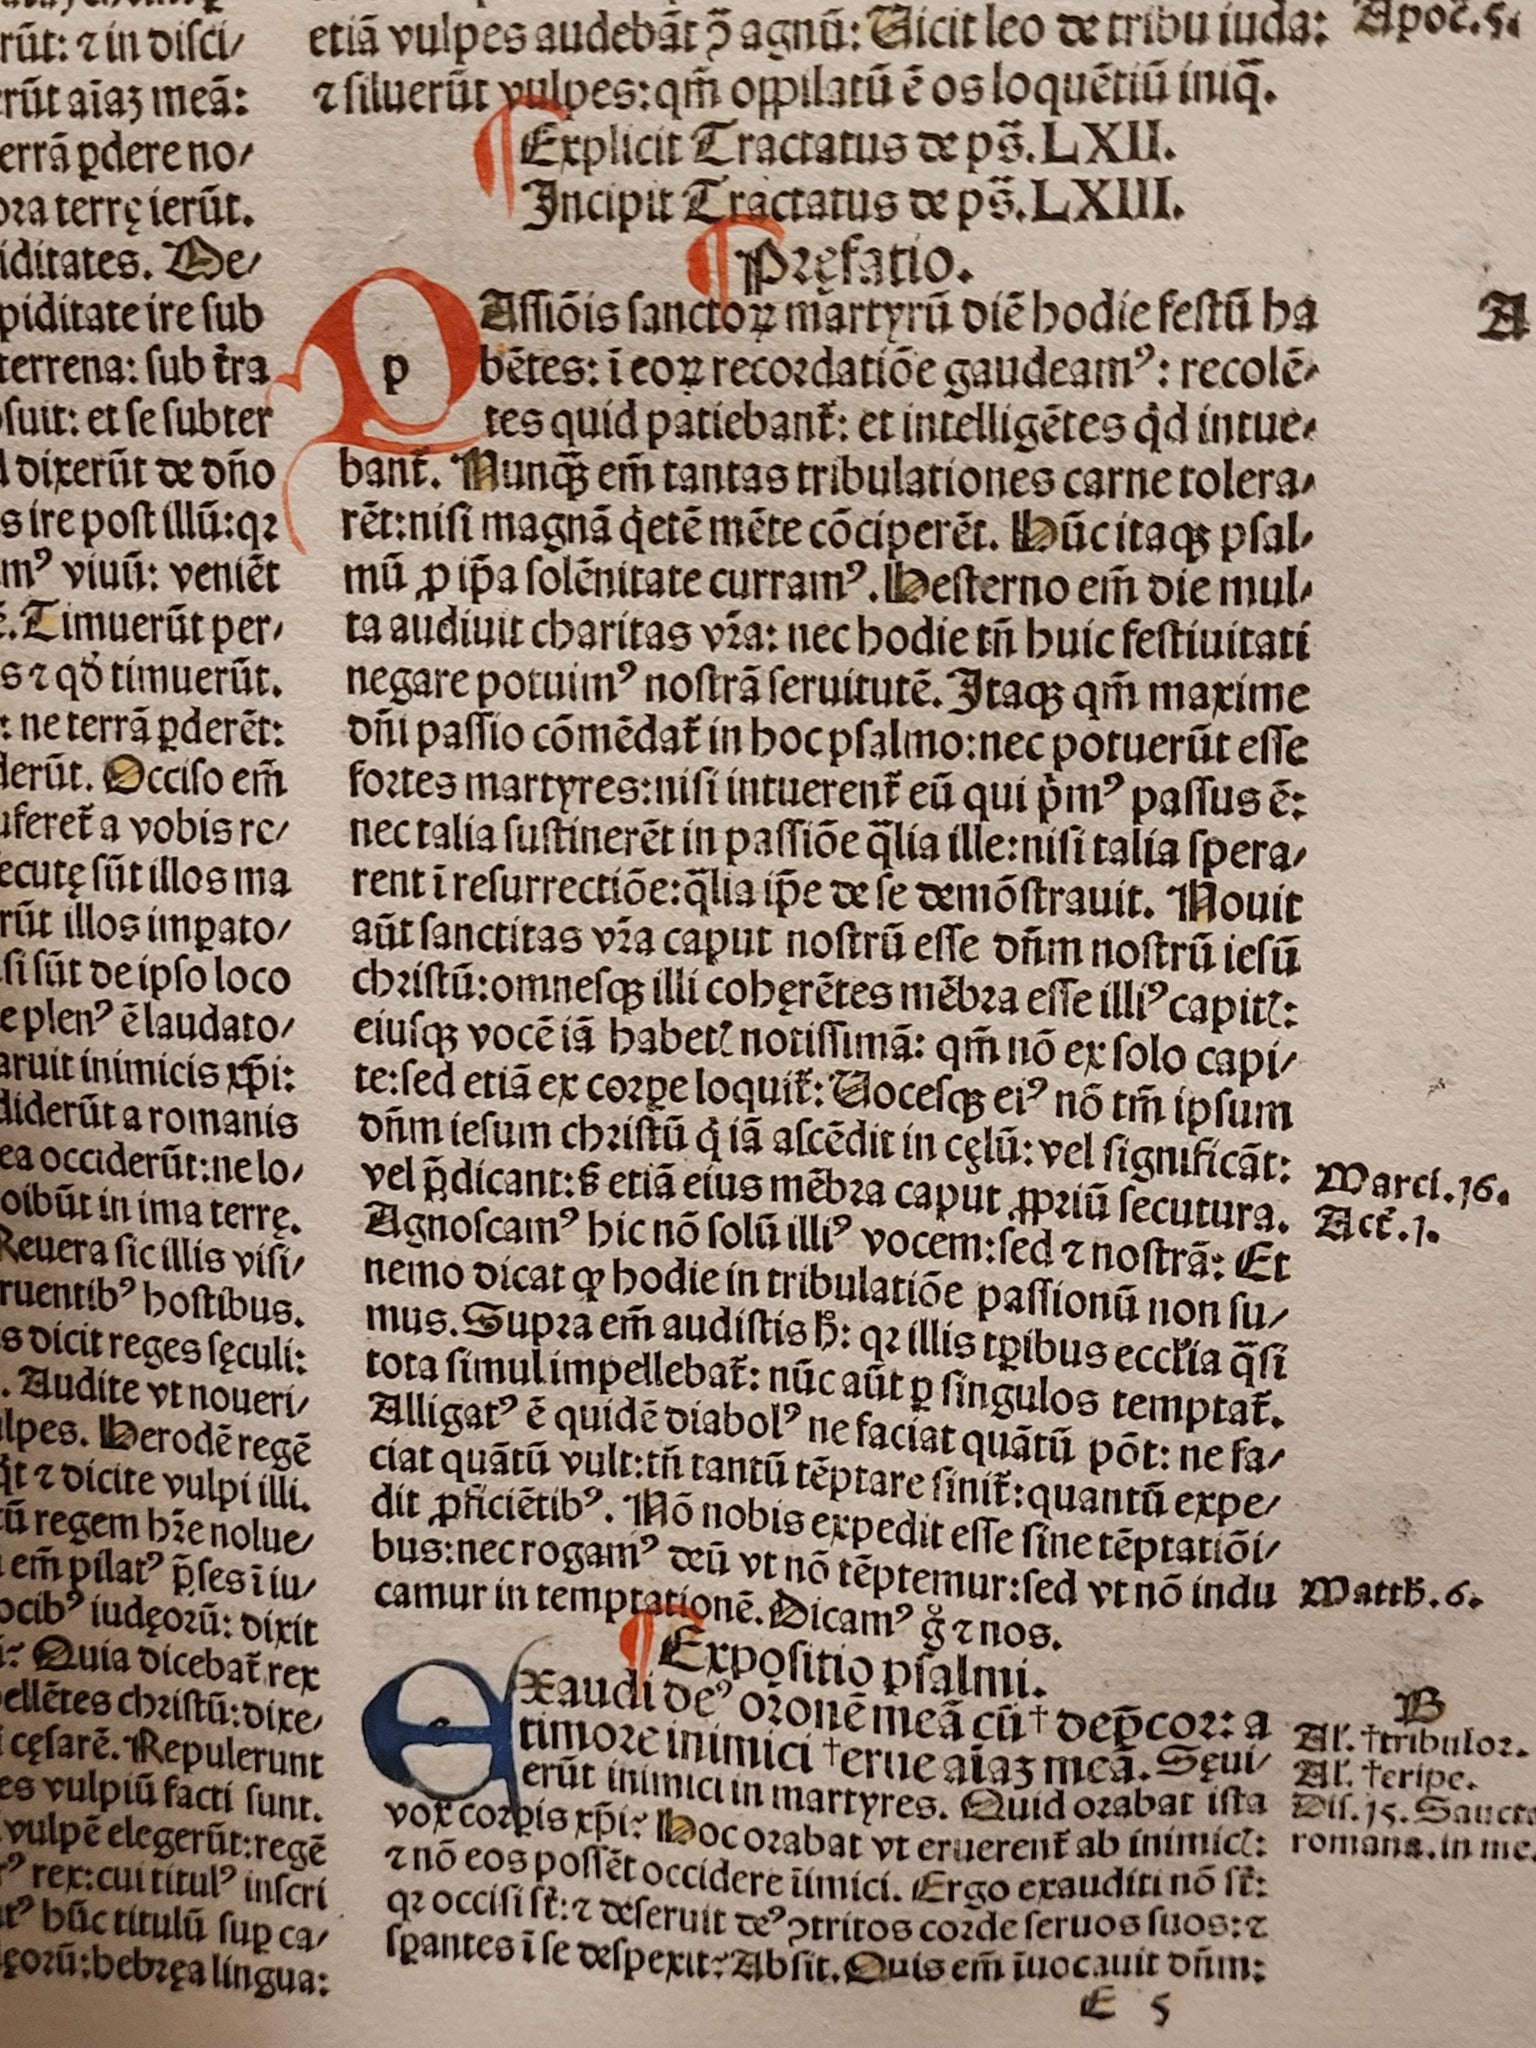 rūt: ⁊ in disci/
erūt aīaʒ meā:
terrā ꝑdere no/
ora terrę ierūt.
iditates. De/
piditate ire sub
terrena: sub t̄ra
osuit: et se subter
d dixerūt de dn̄o
s ire post illū: qꝛ
mꝰ viuū: veniēt
ē. Timuerūt per/
s ⁊ qd̓ timuerūt.
: ne terrā ꝑderēt:
derūt. Occiso em̄
uferet᷑ a vobis re/
secutę sūt illos ma
rūt illos imꝑato/
si sūt de ipso loco
e plenꝰ ē laudato/
aruit inimicis xp̄i:
diderūt a romanis
ea occiderūt: ne lo/
oibūt in ima terrę.
Reuera sic illis visi/
ruentibꝰ hostibus.
s dicit reges sęculi:
. Audite vt noueri/
ulpes. Herodē regē
⁊ dicite vulpi illi.
tū regem hr̄e nolue/
em̄ pilatꝰ p̄ses ī iu/
ocibꝰ iudęorū: dixit
Quia dicebat᷑ rex
pellētes christū: dixe/
i cęsarē. Repulerunt
es vulpiū facti sunt.
vulpē elegerūt: regē
rꝰ rex: cui titulꝰ inscri
hūc titulū suꝑ ca/
ęorū: hebręa lingua:
etiā vulpes audebāt ꝯ̄ agnū: Uicit leo de tribu iuda:
⁊ siluerūt vulpes: qm̄ oppilatū ē os loquētiū iniq̄.
¶ Explicit Tractatus de ps̄. LXII.
Incipit Tractatus de ps̄. LXIII.
¶ Pręfatio.
PAssiōis sanctoꝝ martyrū diē hodie festū ha
bētes: ī eoꝝ recordatiōe gaudeamꝰ: recolē/
tes quid patiebant᷑: et intelligētes qͥd intue/
bant᷑. Nunqᷓꝫ em̄ tantas tribulationes carne tolera/
rēt: nisi magnā qͥetē mēte cōciperēt. Hūc itaqꝫ psal/
mū ꝓ ip̄a solēnitate curramꝰ. Hesterno em̄ die mul/
ta audiuit charitas vr̄a: nec hodie tn̄ huic festiuitati
negare potuimꝰ nostrā seruitutē. Itaqꝫ qm̄ maxime
dn̄i passio cōmēdat᷑ in hoc psalmo: nec potuerūt esse
fortes martyres: nisi intuerent᷑ eū qui pͥmꝰ passus ē:
nec talia sustinerēt in passiōe qᷓlia ille: nisi talia spera/
rent ī resurrectiōe: qᷓlia ip̄e de se demōstrauit. Nouit
aūt sanctitas vr̄a caput nostrū esse dn̄m nostrū iesū
christū: omnesqꝫ illi cohęrētes mēbra esse illiꝰ capitꝭ:
eiusqꝫ vocē iā habetꝭ notissimā: qm̄ nō ex solo capi/
te: sed etiā ex corꝑe loquit᷑: Uocesqꝫ eiꝰ nō tm̄ ipsum
dn̄m iesum christū qͥ iā ascēdit in cęlū: vel significāt:
vel p̄dicant: sꝫ etiā eius mēbra caput ꝓpriū secutura.
Agnoscamꝰ hic nō solū illiꝰ vocem: sed ⁊ nostrā: Et
nemo dicat ꝙ hodie in tribulatiōe passionū non su/
mus. Supra em̄ audistis h̓: qꝛ illis tꝑibus eccľia qᷓsi
tota simul impellebat᷑: nūc aūt ꝑ singulos temptat᷑.
Alligatꝰ ē quidē diabolꝰ ne faciat quātū pōt: ne fa/
ciat quātū vult: tn̄ tantū tēptare sinit᷑: quantū expe/
dit ꝓficiētibꝰ. Nō nobis expedit esse sine tēptatiōi/
bus: nec rogamꝰ deū vt nō tēptemur: sed vt nō indu
camur in temptationē. Dicamꝰ gͦ ⁊ nos.
¶ Expositio psalmi.
Exaudi deꝰ or̄onē meā cū † dep̄cor: a
timore inimici † erue aīaʒ meā. Sęui/
erūt inimici in martyres. Quid orabat ista
vox corꝑis xp̄i? Hoc orabat vt eruerent᷑ ab inimicꝭ:
⁊ nō eos possēt occidere īimici. Ergo exauditi nō st̄:
qꝛ occisi st̄: ⁊ deseruit deꝰ ꝯtritos corde seruos suos: ⁊
sꝑantes ī se despexit? Absit. Quis em̄ īuocauit dn̄m:
E 5
Apoc̄. 5.
A
Marci. 16.
Act̄. 1.
Matth̓. 6.
B
Aľ. † tribulor.
Aľ. † eripe.
Dis. 15. Sancta
romana. in me.